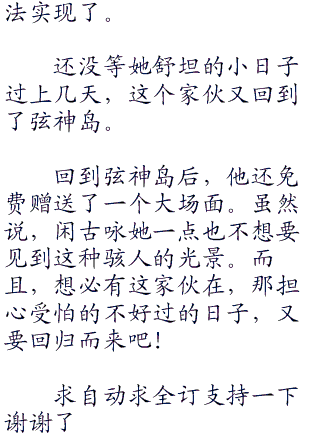 法实现了。
还没等她舒坦的小日子
过上几天，这个家伙又回到
了弦神岛。
回到弦神岛后，他还免
费赠送了一个大场面。虽然
说，闲古咏她一点也不想要
见到这种骇人的光景。而
且，想必有这家伙在，那担
心受怕的不好过的日子，又
要回归而来吧！
求自动求全订支持一下
谢谢了